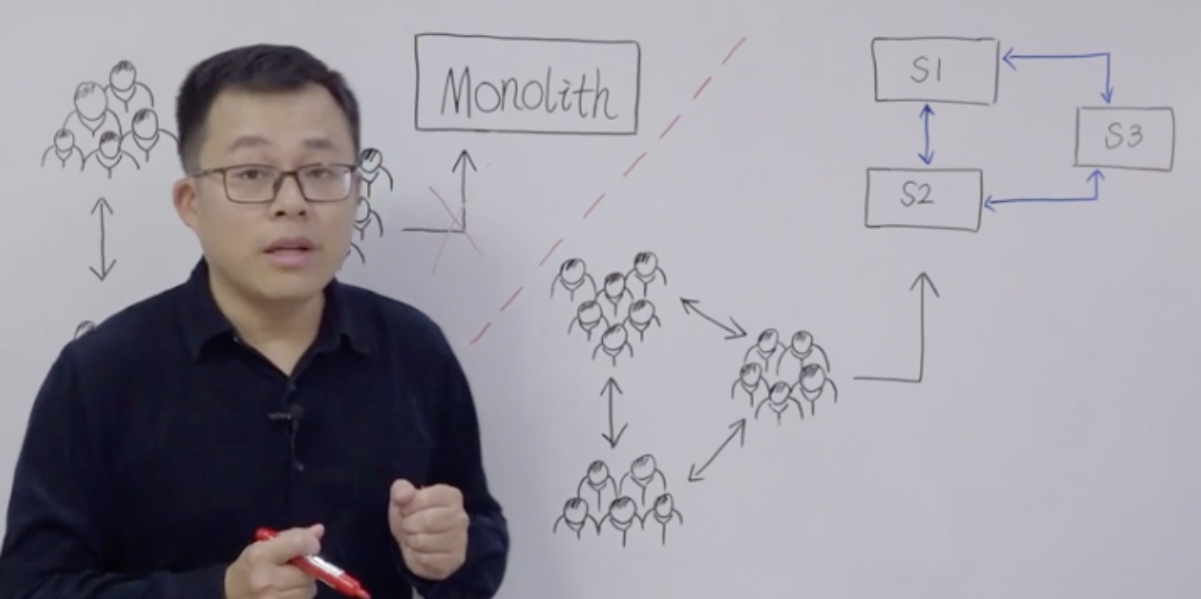 Monolith
S1
S3
S2